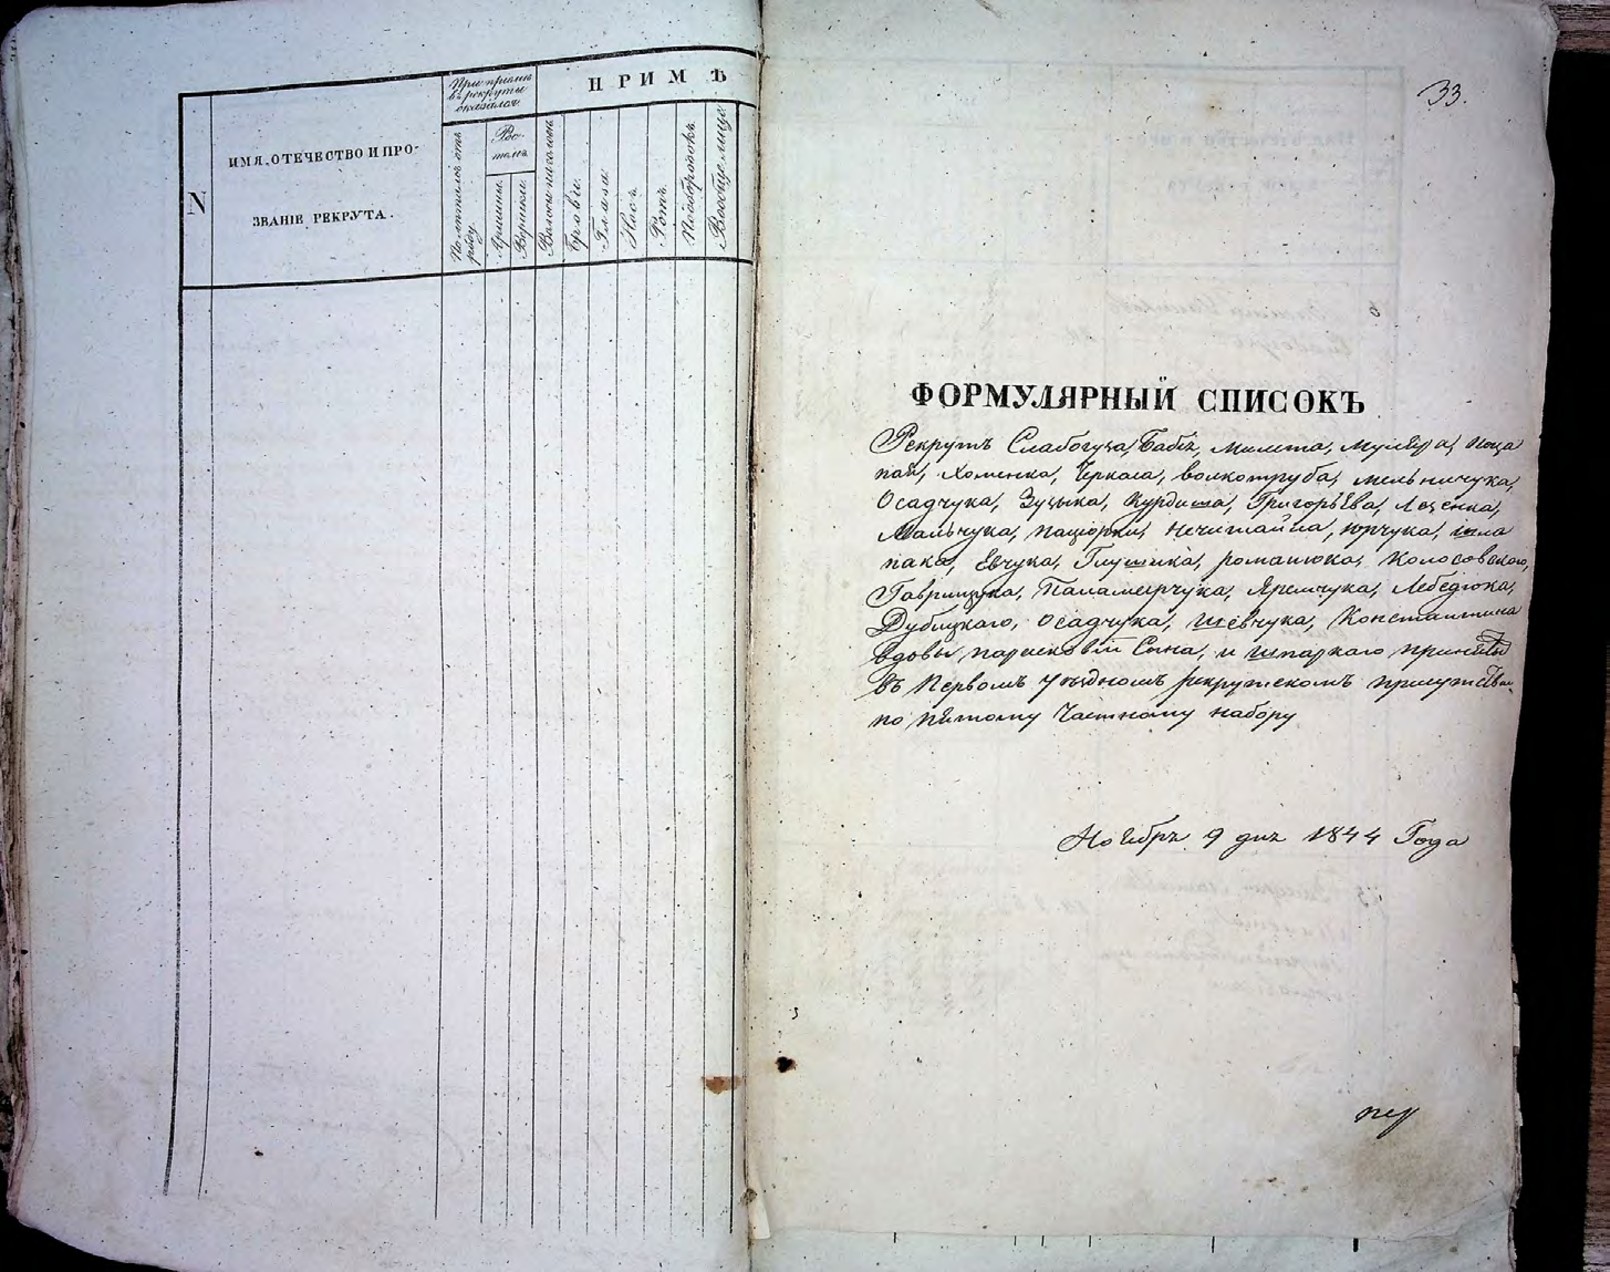 N
ИМЯ, ОТЕЧЕСТВО И ПРО-
ЗВАНІЕ РЕКРУТА.
При приемѣ
въ рекруты
оказался.
По лѣтамъ отъ
роду.
Ро-
стомъ
Аршины.
Вершки.
ПРИМѢ
Волосы на головѣ
Брови.
Глаза.
Носъ.
Ротъ.
Подбородокъ.
Вообще лице
33.
ФОРМУЛЯРНЫЙ СПИСОКЪ
Рекрутъ Слабогуза, Бабія, Милита, поца
пай, Хоменка, Черкаса, волкотруба, мельничука,
Осадчука, Зузыка, Курдиша, Григорьева, Лещенка,
Мальчука, пацюрки, нечитайла, юрчука, шла
пака, Евчука, Глушика, романюка, Колосовского,
Гаврищука, Паламарчука, Яремчука, Лебедюка,
Дубицкаго, Осадчука, Шевчука, Константина
вдовы парасковіи Сына, и шпаркаго принятыхъ
въ Первомъ уѣздномъ рекрутскомъ присутствіи
по пятому Частному набору
Ноября 9 дня 1844 Года